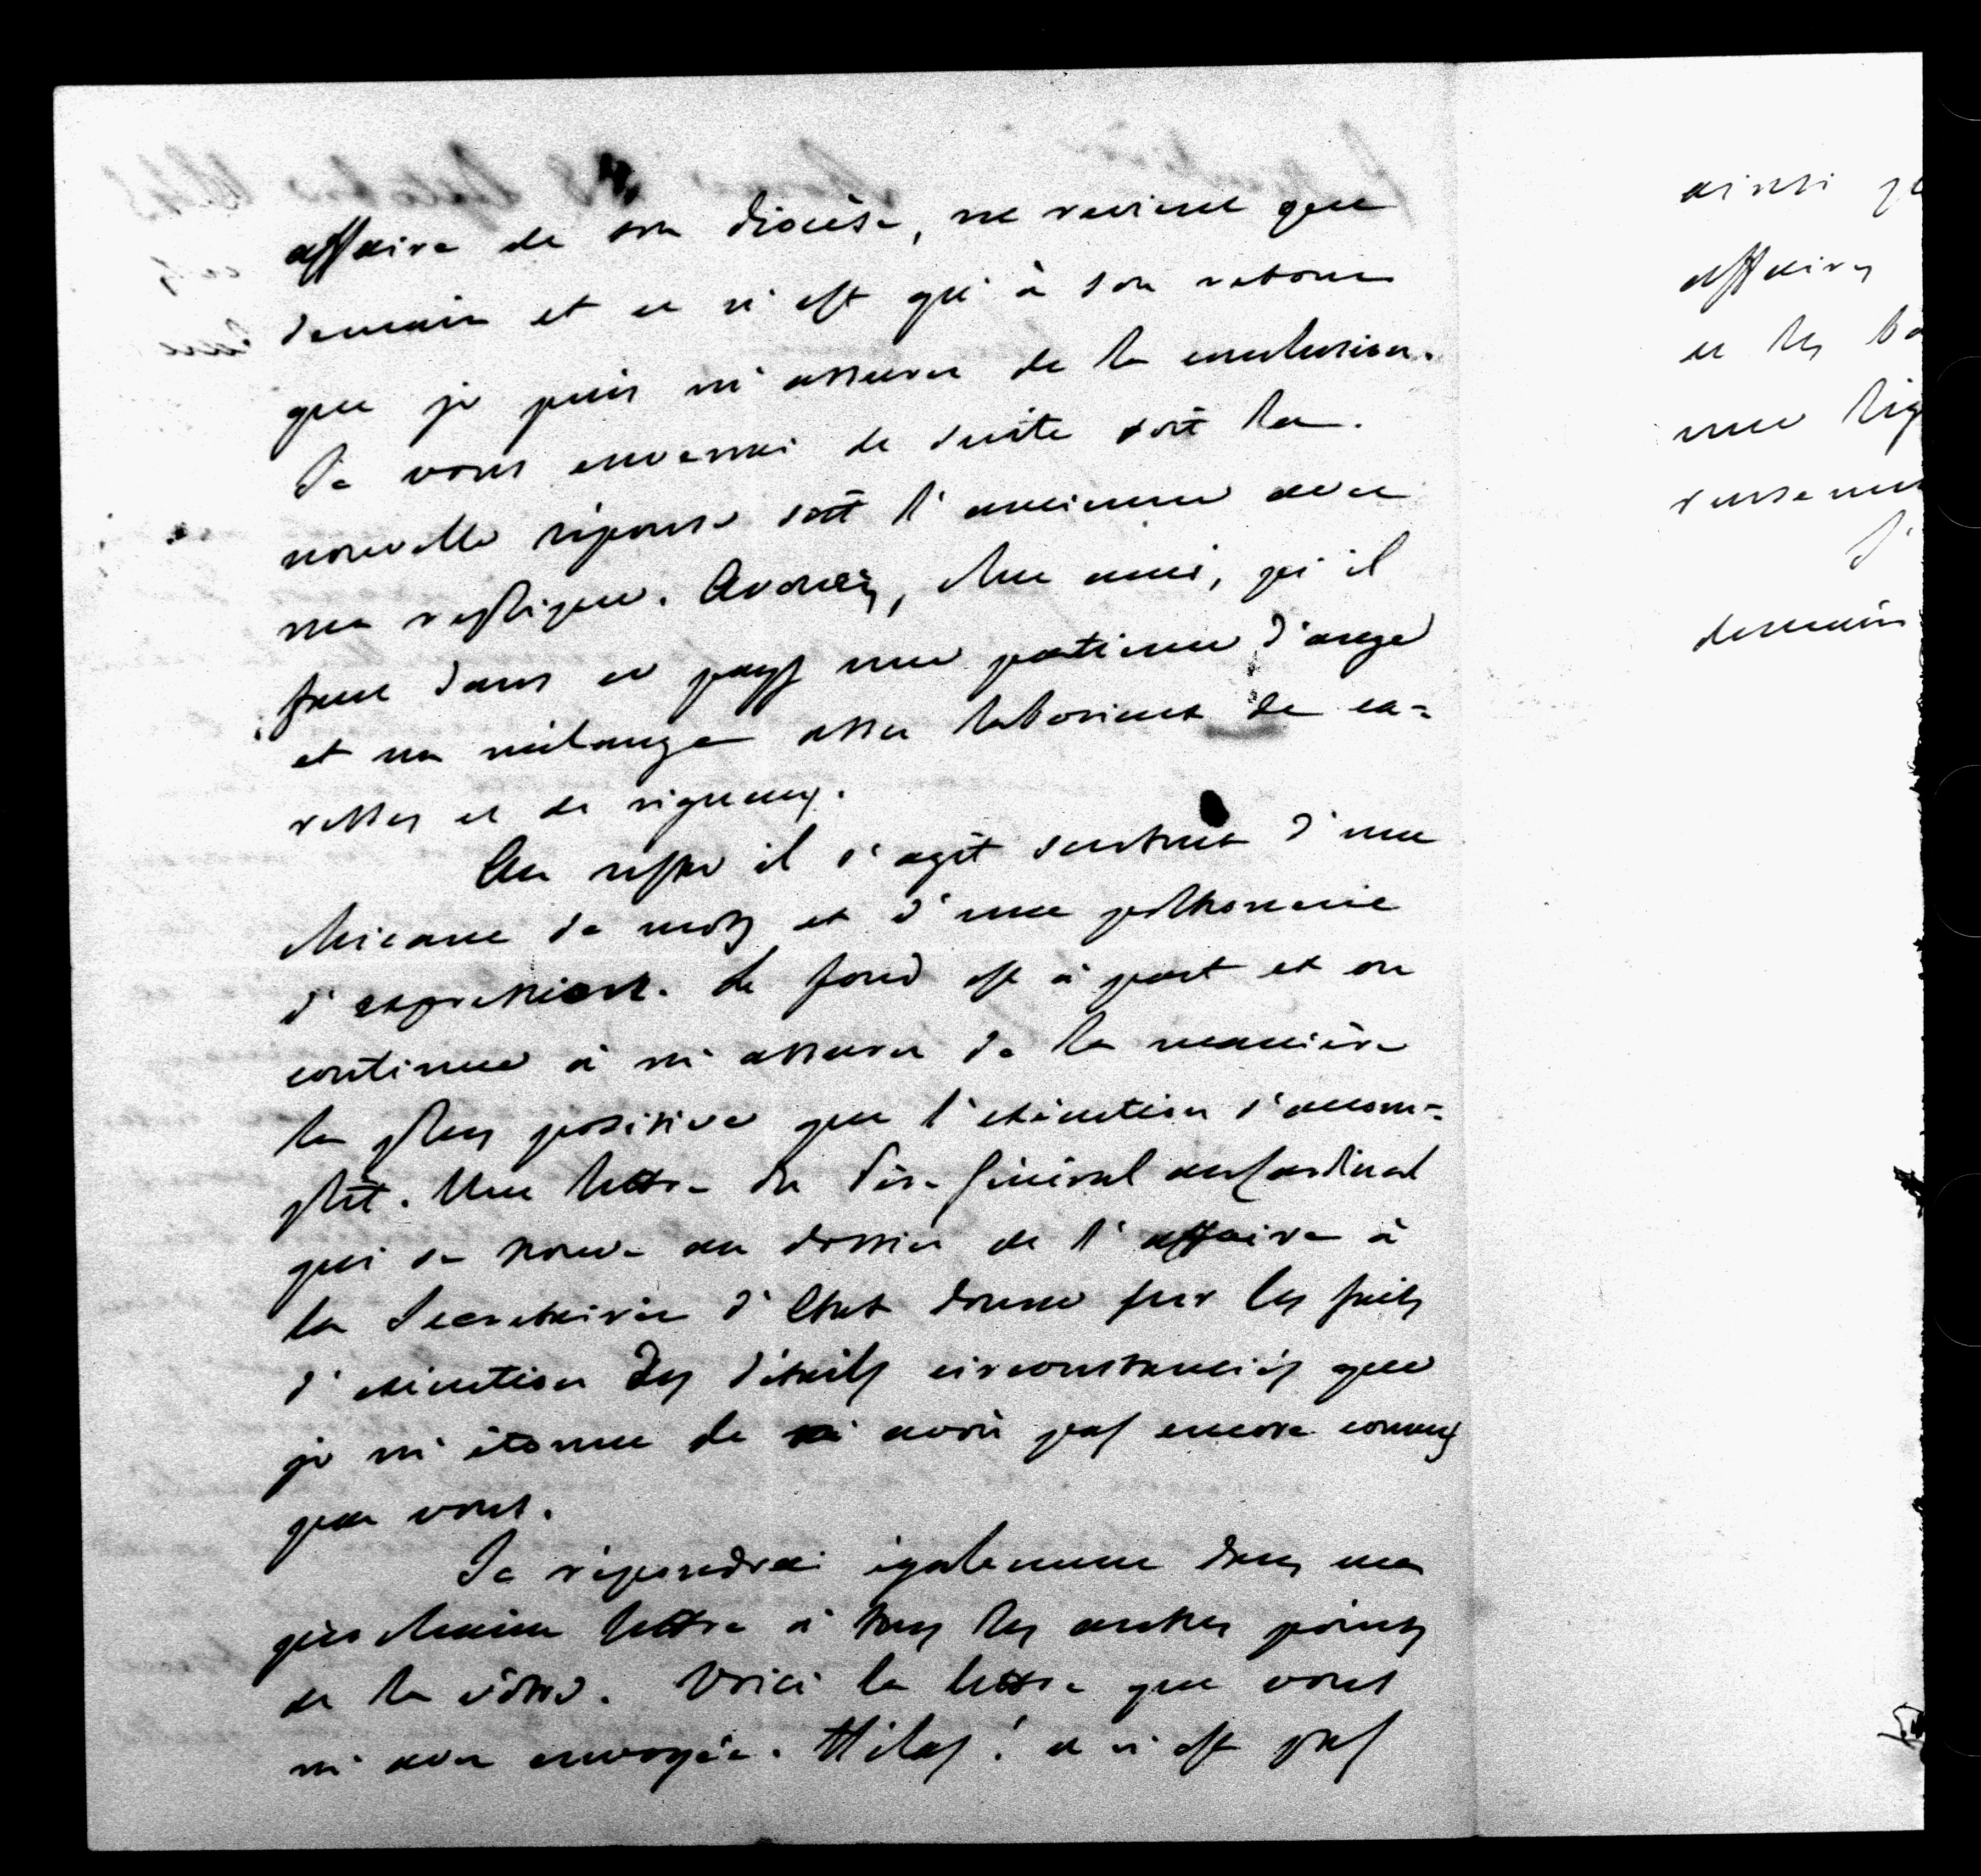 affaire de son diocèse, ne revient que
demain et ce n'est qu'à son retour
que je puis m'assurer de la conclusion.
Je vous enverrai de suite soit la
nouvelle réponse soit l'ancienne avec
ma réplique. Avouez, cher ami, qu'il
faut dans ce pays une patience d'ange
et un mélange assez laborieux de ca-
resses et de rigueurs.
Au reste il s'agit surtout d'une
chicane de mots et d'une poltronnerie
d'expressions. Le fond est à part et on
continue à m'assurer de la manière
la plus positive que l'exécution s'accom-
plit. Une lettre du Père Général au Cardinal
qui se trouve au dossier de l'affaire à
la Secretairie d'Etat donne sur les faits
d'exécution des détails circonstanciés que
je m'étonne de n'avoir pas encore connus
par vous.
Je répondrai également dans ma
prochaine lettre à tous les autres points
de la vôtre. Voici la lettre que vous
m'avez envoyée. Hélas! ce n'est pas
ainsi
affaires
et les
une
demain